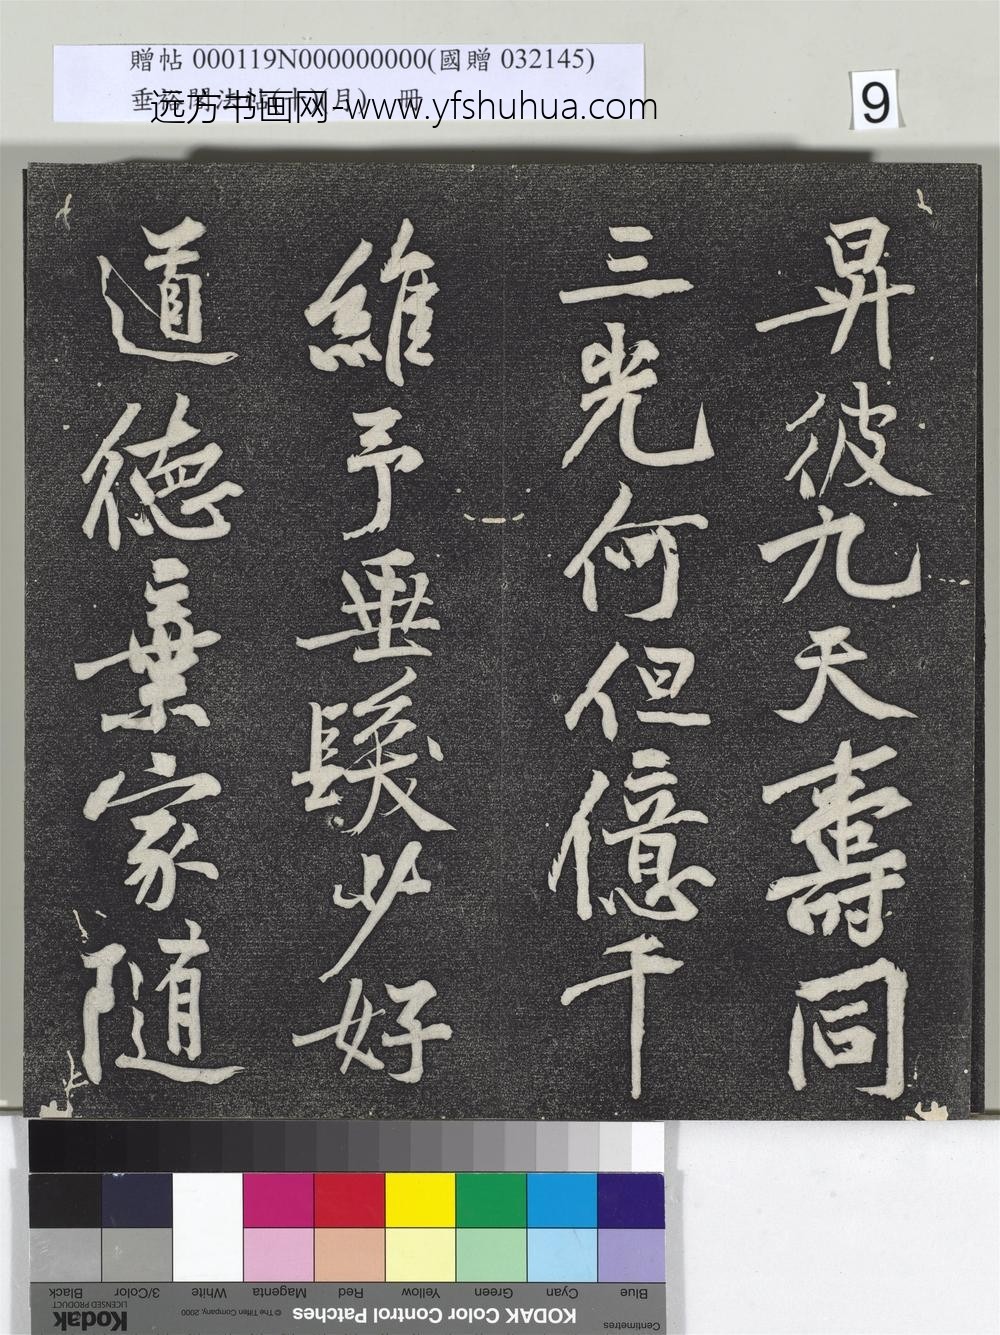 贈帖 000119N000000000(國贈 032145)
远方书画网-www.yfshuhua.com
9
昇彼九天壽同
三光何但億千
維予垂髮少好
道德棄家隨
Blue Cyan Green Yellow Red Magenta White 3/Color Black
Centimetres KODAK Color Control Patches © The Tiffen Company, 2000 Kodak
LICENSED PRODUCT